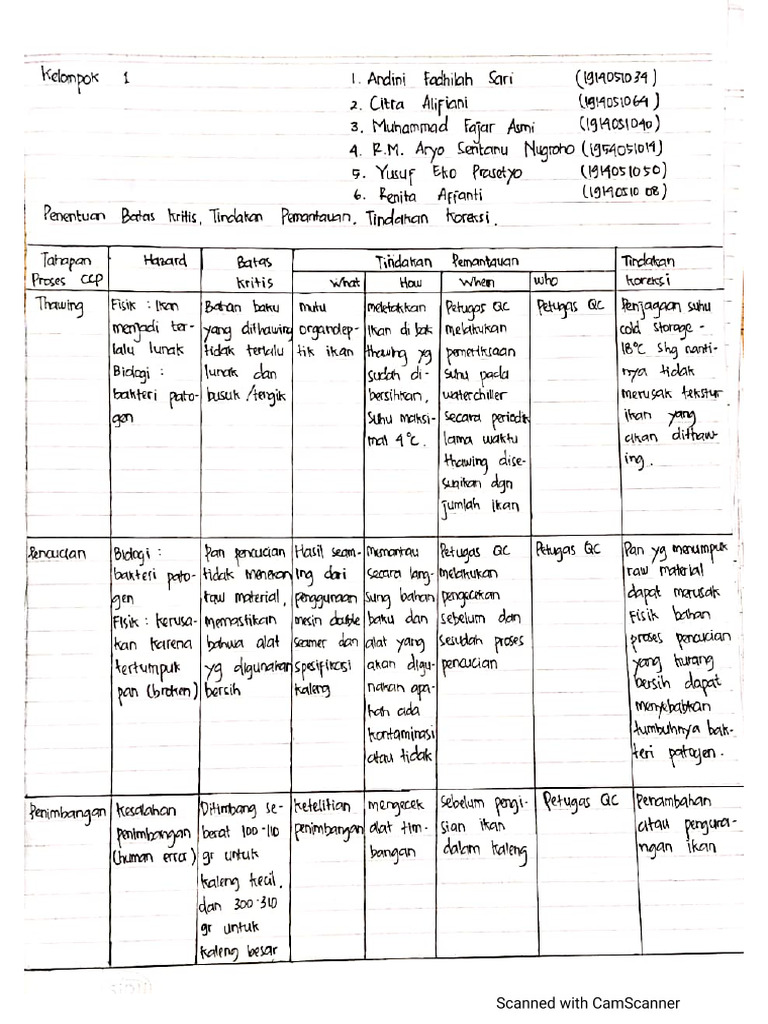 Kelompok 1
1. Andini Fadhilah Sari (1914051034)
2. Citra Alifiani (1914051064)
3. Muhammad Fajar Asmi (1914051040)
4. R.M. Aryo Sentanu Nugroho (1954051014)
5. Yusuf Eko Prasetyo (1914051050)
6. Renita Affanti (1914051008)
Penentuan Batas Kritis, Tindakan Pemantauan, Tindakan Koreksi.
Tahapan
Proses CCP
Hazard
Batas
Kritis
Tindakan Pemantauan
What
How
When
Who
Tindakan
Koreksi
Thawing
Fisik : Ikan
menjadi ter-
lalu lunak
Biologi :
bakteri pato-
gen
Bahan baku
yang dithawing
tidak terlalu
lunak dan
busuk /tengik
mutu
organolep-
tik ikan
meletakkan
ikan di bak
thawing yg
sudah di-
bersihkan,
Suhu maksi-
mal 4°C.
Petugas QC
melakukan
pemeriksaan
suhu pada
waterchiller
secara periodik
lama waktu
thawing dise-
suaikan dgn
jumlah ikan
Petugas QC
Penjagaan suhu
cold storage -
18°C shg nanti-
nya tidak
merusak tekstur
ikan yang
akan dithaw-
ing.
Pencucian
Biologi :
bakteri pato-
gen
Fisik : kerusa-
kan karena
tertumpuk
pan (broken)
Pan pencucian
tidak menekan
raw material,
memastikan
bahwa alat
yg digunakan
bersih
Hasil seam-
ing dari
penggunaan
mesin double
seamer dan
spesifikasi
kaleng
Memantau
secara lang-
sung bahan
baku dan
alat yang
akan digu-
nakan apa-
kah ada
kontaminasi
atau tidak
Petugas QC
melakukan
pengecekan
sebelum dan
sesudah proses
pencucian
Petugas QC
Pan yg menumpuk
raw material
dapat merusak
fisik bahan
proses pencucian
yang kurang
bersih dapat
menyebabkan
tumbuhnya bak-
teri patogen.
Penimbangan
Kesalahan
penimbangan
(human error)
Ditimbang se-
berat 100-110
gr untuk
kaleng kecil,
dan 300-310
gr untuk
kaleng besar
ketelitian
penimbangan
mengecek
alat tim-
bangan
sebelum pengi-
sian ikan
dalam kaleng
Petugas QC
Penambahan
atau pengura-
ngan ikan
Scanned with CamScanner